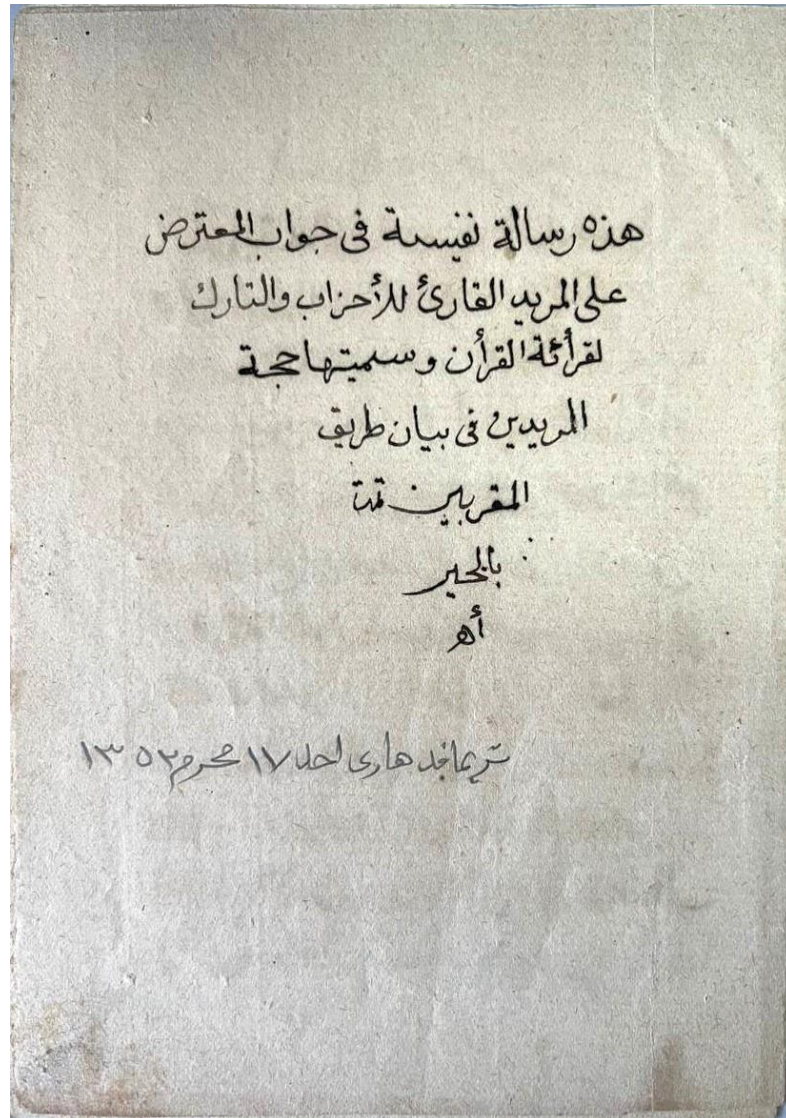 هذه رسالة نفيسة فى جواب المعترض
على المريد القارئ للأحزاب والتارك
لقرأئة القرأن وسميتها حجة
المريدين فى بيان طريق
المقربين تمت
بالخير
أه
هارى احد ١٧ محرم ١٣٥٢